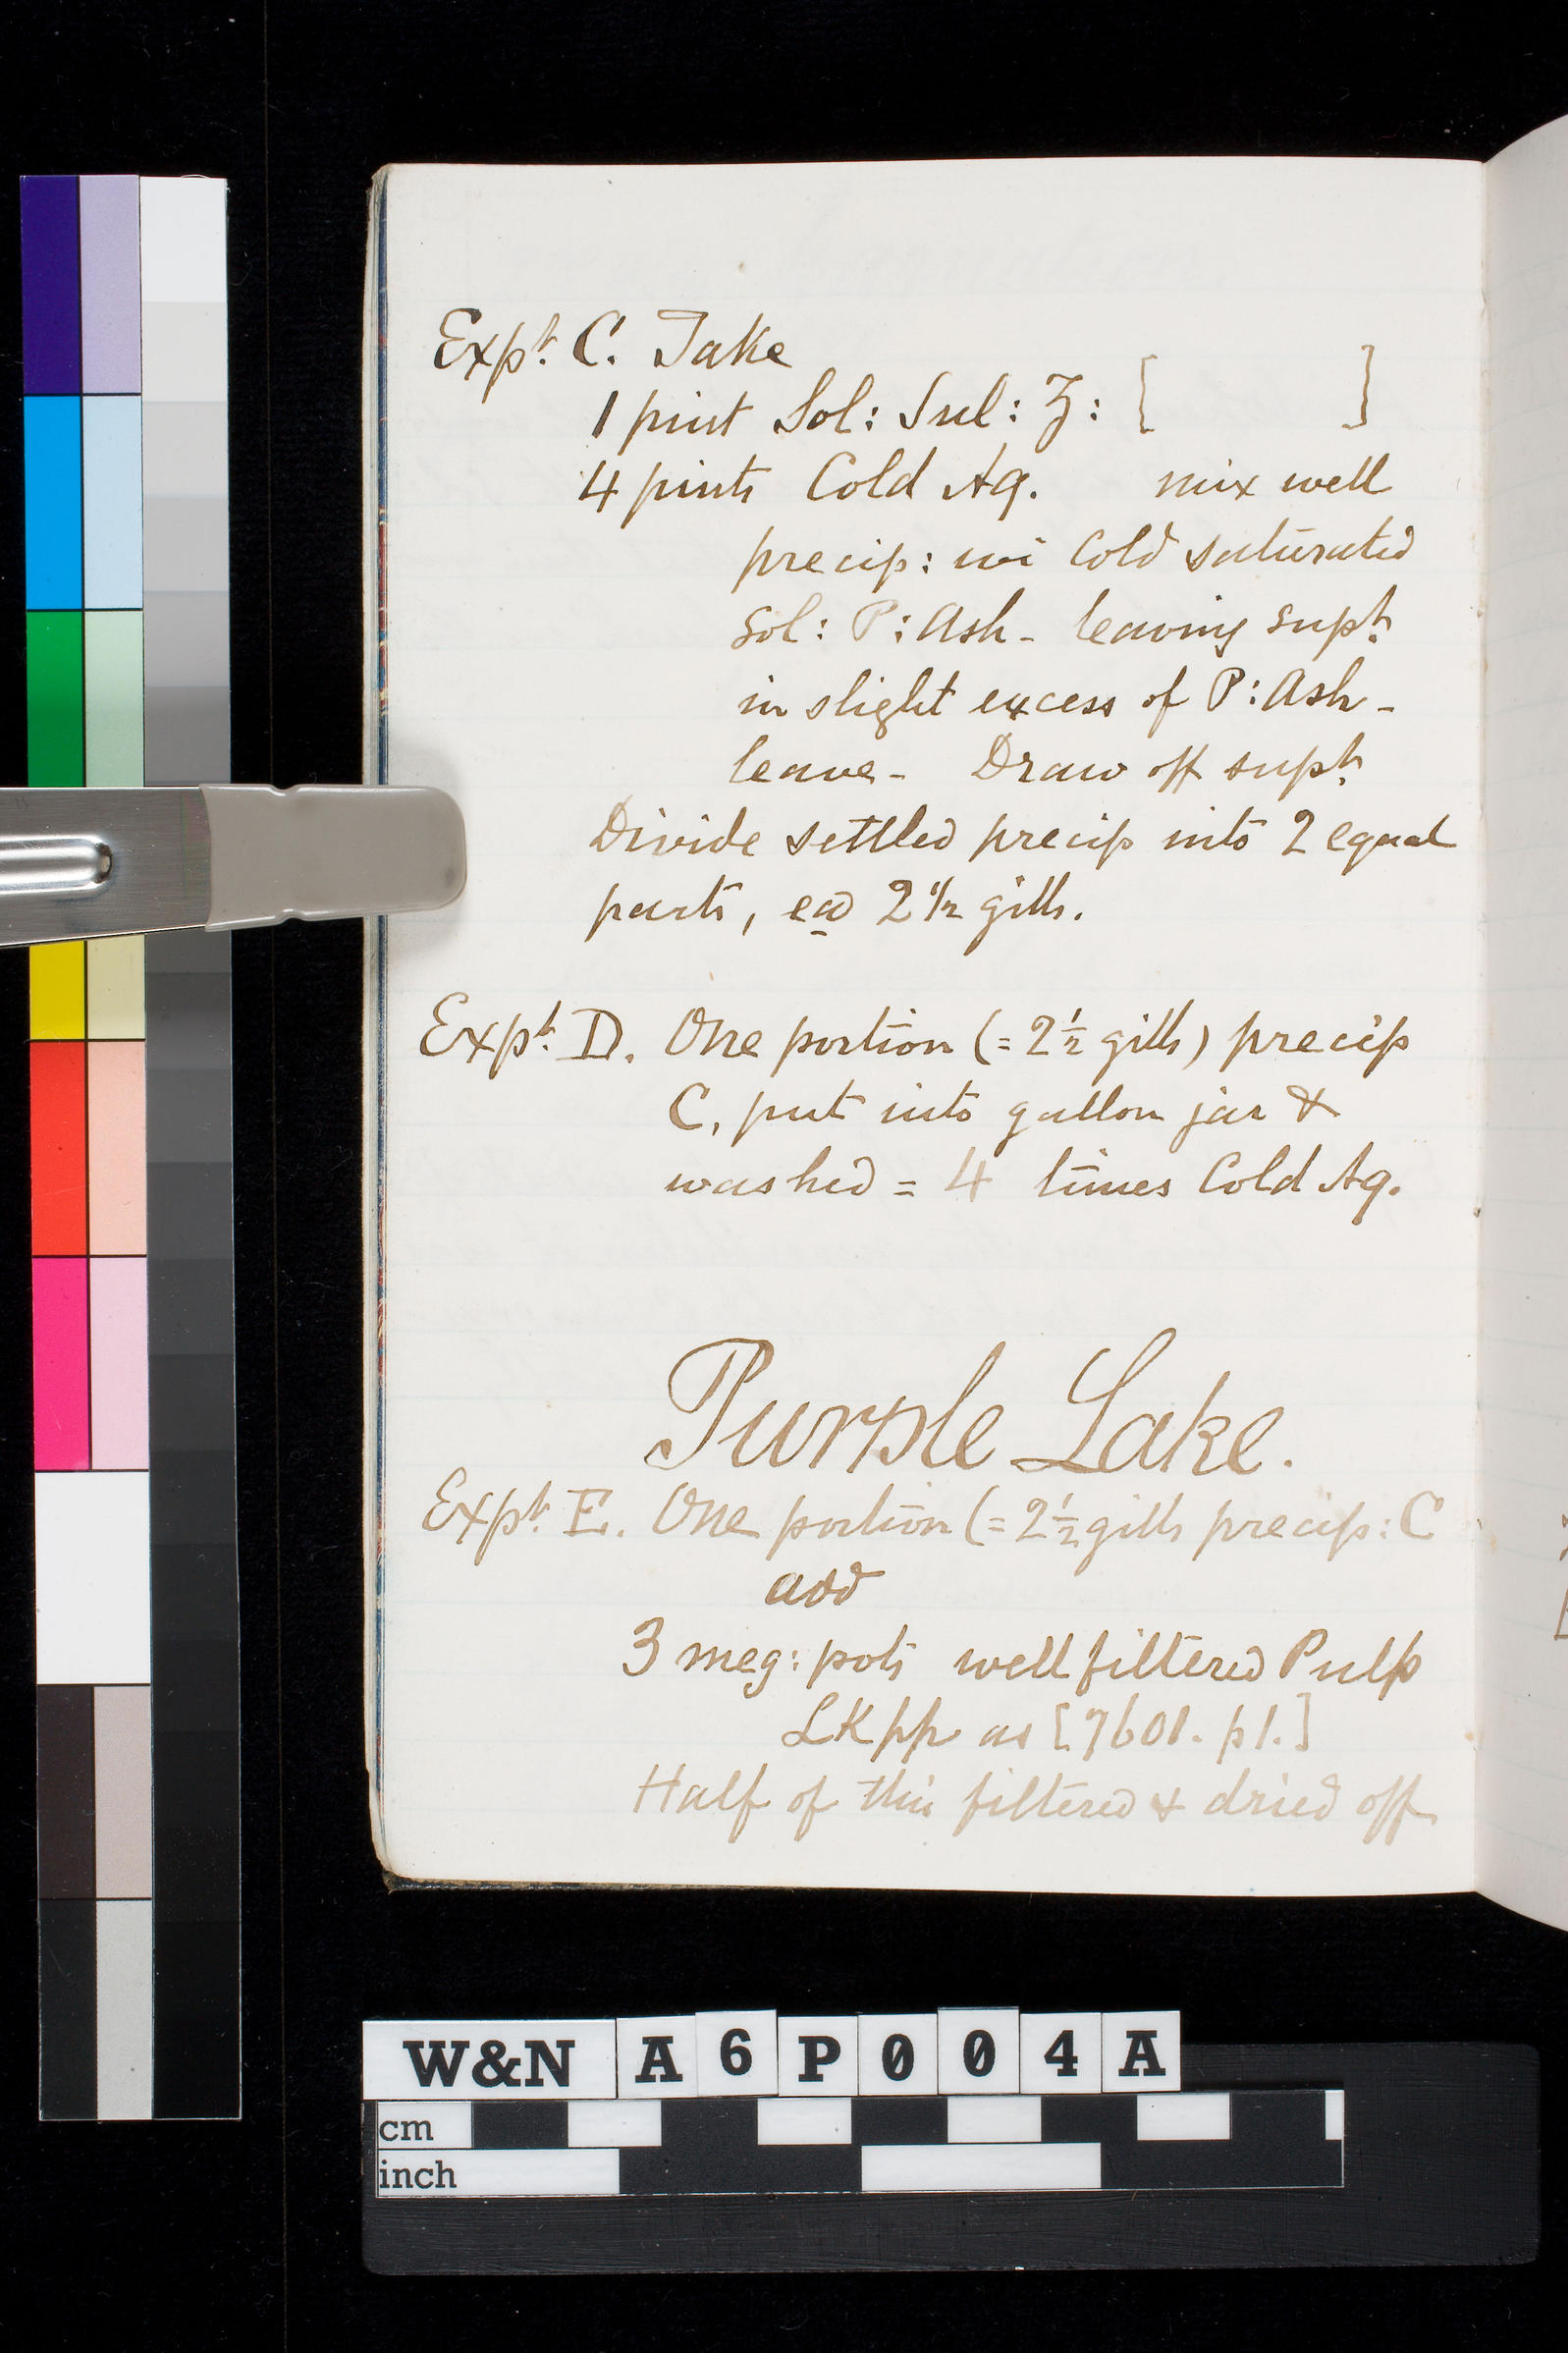 Expt. C. Take
1 pint Sol: Sul: Z: [ ]
4 pints Cold Aq. mix well
precip: wi Cold saturated
Sol: P: Ash - leaving supt.
in slight excess of P: Ash -
leave - Draw off supt.
Divide settled precip into 2 equal
parts, ea 2 1/2 gills.
Expt. D. One portion (= 2 1/2 gills) precip
C, put into gallon jar &
washed = 4 times Cold Aq.
Purple Lake.
Expt. E. One portion (= 2 1/2 gills precip: C
add
3 meg: pots well filtered Pulp
LKpp as [7601. p1.]
Half of this filtered & dried off
W&N A6P004A
cm
inch